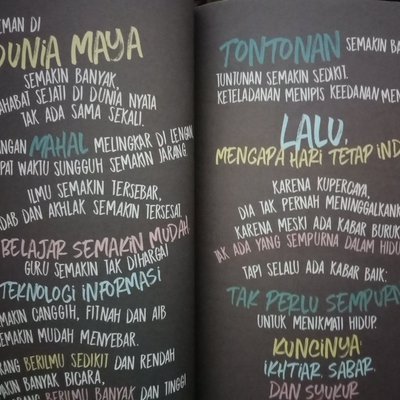 EMAN DI
DUNIA MAYA
SEMAKIN BANYAK,
AHABAT SEJATI DI DUNIA NYATA
TAK ADA SAMA SEKALI.
ANGAN MAHAL MELINGKAR DI LENGAN
PAT WAKTU SUNGGUH SEMAKIN JARANG
ILMU SEMAKIN TERSEBAR,
DAB DAN AKHLAK SEMAKIN TERSESAT.
BELAJAR SEMAKIN MUDAH,
GURU SEMAKIN TAK DIHARGAI
TEKNOLOGI INFORMASI
MAKIN CANGGIH, FITNAH DAN AIB
SEMAKIN MUDAH MENYEBAR.
RANG BERILMU SEDIKIT DAN RENDAH
MAKIN BANYAK BICARA,
RANG BERILMU BANYAK DAN TINGGI
TONTONAN SEMAKIN BA
TUNTUNAN SEMAKIN SEDIKIT.
KETELADANAN MENIPIS KEEDANAN MEN
LALU,
MENGAPA HARI TETAP IND
KARENA KUPERCAYA,
DIA TAK PERNAH MENINGGALKAN
KARENA MESKI ADA KABAR BURUK
TAK ADA YANG SEMPURNA DALAM HIDU
TAPI SELALU ADA KABAR BAIK:
TAK PERLU SEMPURN
UNTUK MENIKMATI HIDUP.
KUNCINYA:
IKHTIAR, SABAR,
DAN SYUKUR